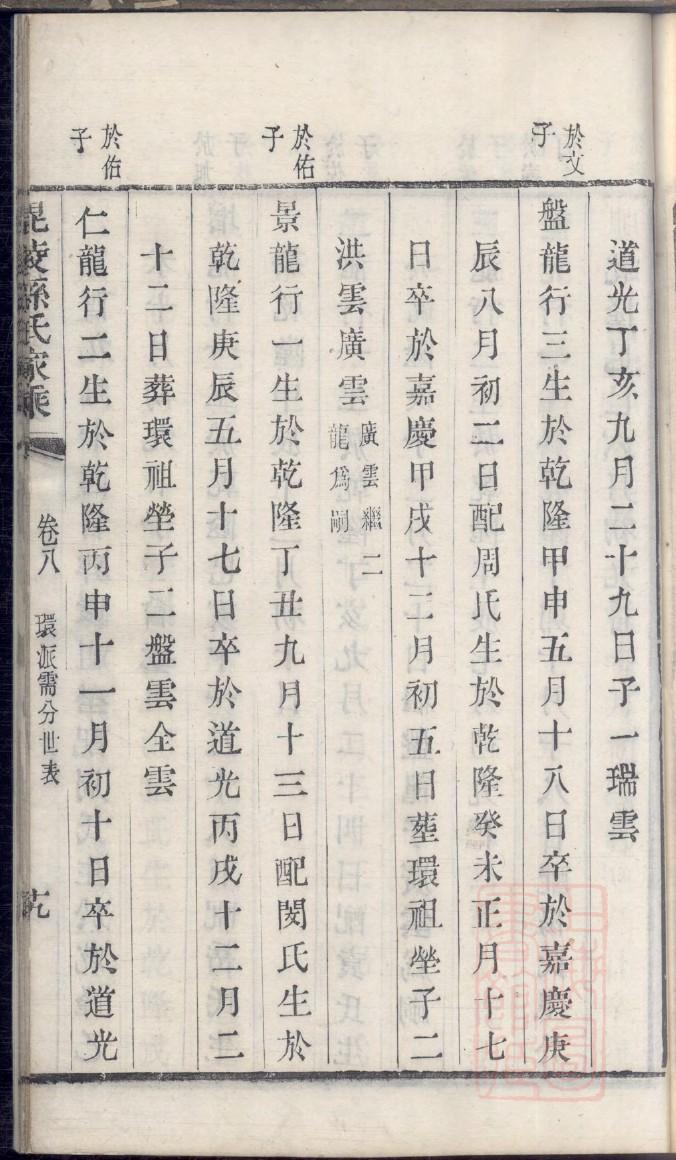 道光丁亥九月二十九日子一瑞雲
於文子
盤龍行三生於乾隆甲申五月十八日卒於嘉慶庚
辰八月初二日配周氏生於乾隆癸未正月十七
日卒於嘉慶甲戌十二月初五日葬環祖塋子二
洪雲廣雲廣雲繼二龍爲嗣
於佑子
景龍行一生於乾隆丁丑九月十三日配閔氏生於
乾隆庚辰五月十七日卒於道光丙戌十二月二
十二日葬環祖塋子二盤雲全雲
於佑子
仁龍行二生於乾隆丙申十一月初十日卒於道光
毘陵孫氏家乘
卷八
環派需分世表